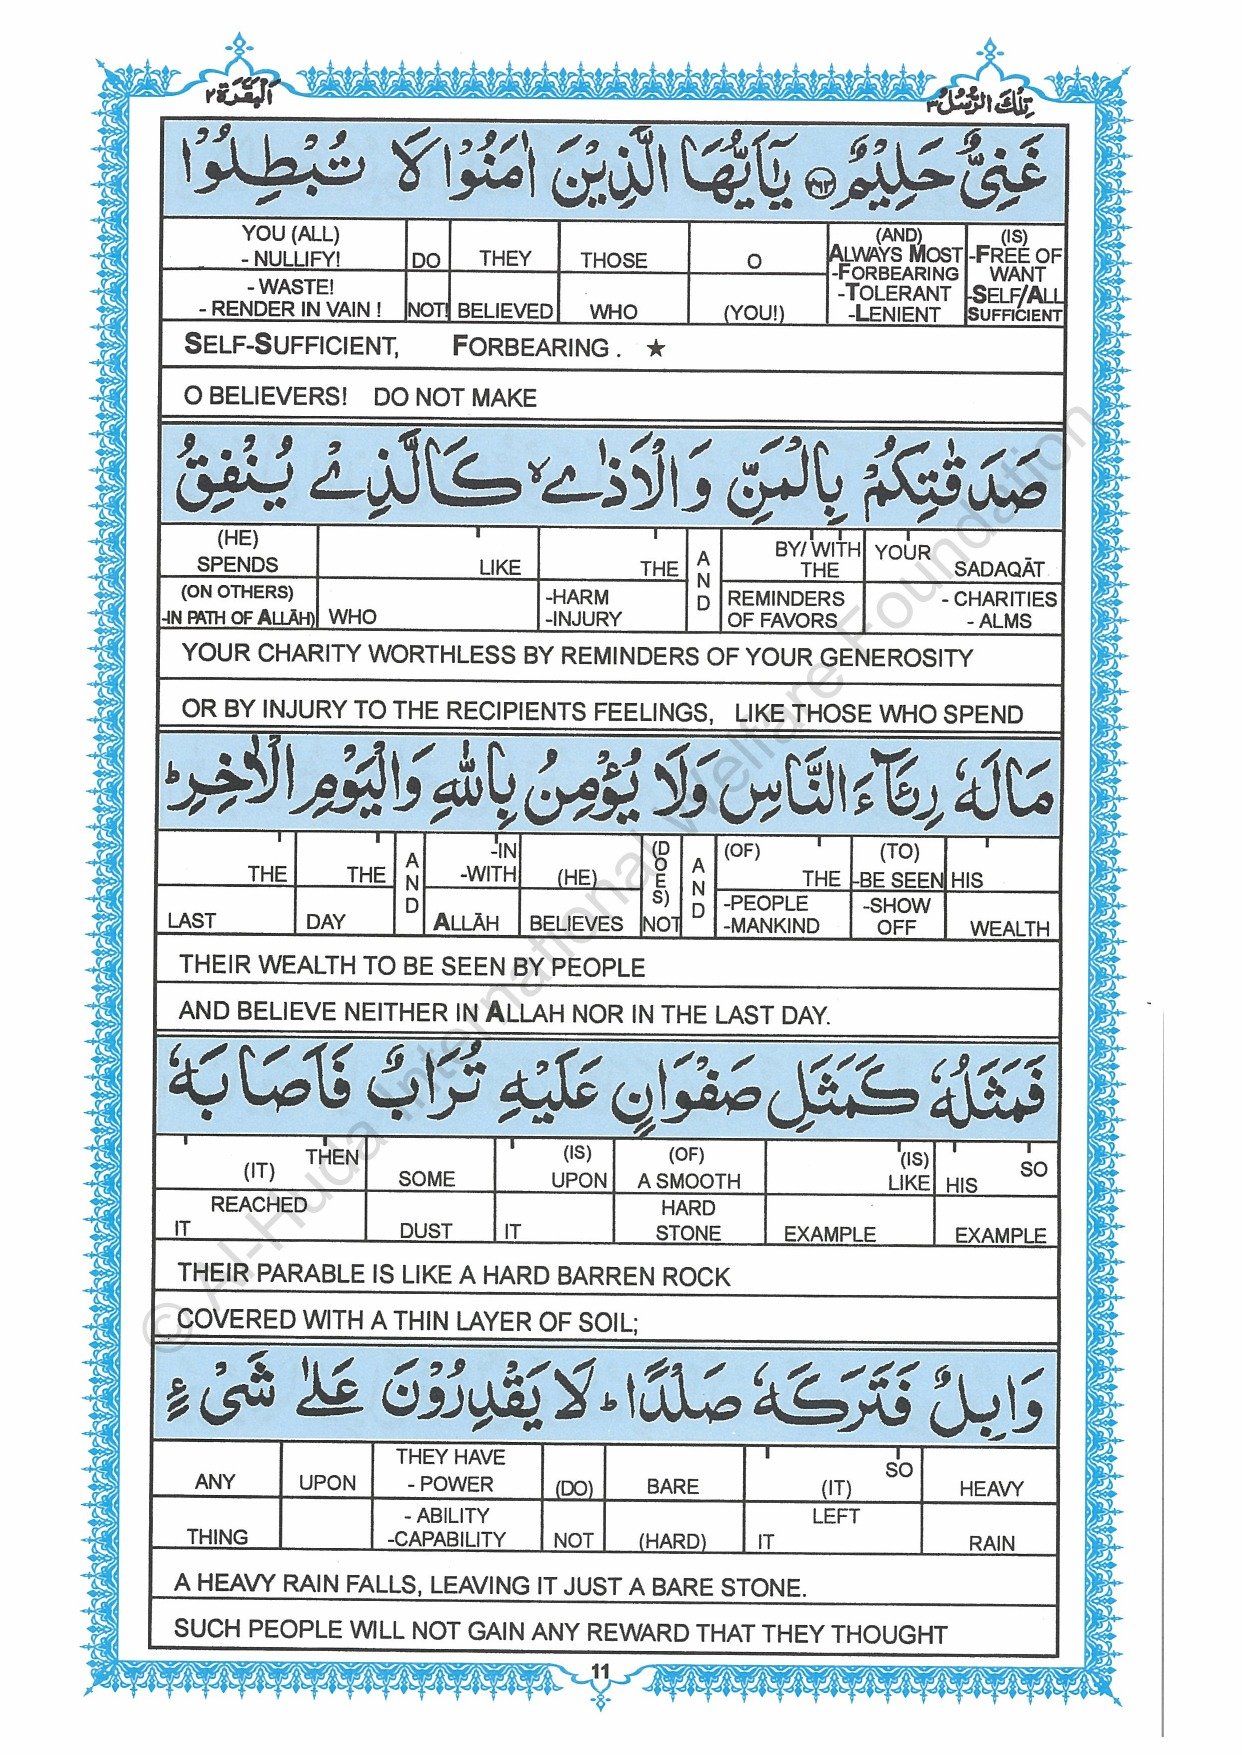 اَلْبَقَرَة ٢
تِلْكَ الرُّسُلُ ٣
غَنِیٌّ حَلِیْمٌ ﴿۲۶۳﴾ یٰۤاَیُّهَا الَّذِیْنَ اٰمَنُوْا لَا تُبْطِلُوْا
YOU (ALL) - NULLIFY! DO THEY THOSE O (AND) ALWAYS MOST -FORBEARING (IS) -FREE OF WANT
- WASTE! - RENDER IN VAIN ! NOT! BELIEVED WHO (YOU!) -TOLERANT -LENIENT -SELF/ALL SUFFICIENT
SELF-SUFFICIENT, FORBEARING . ★
O BELIEVERS! DO NOT MAKE
صَدَقٰتِكُمْ بِالْمَنِّ وَالْاَذٰی ۙ كَالَّذِیْ یُنْفِقُ
(HE) SPENDS LIKE THE AND BY/ WITH THE YOUR SADAQĀT
(ON OTHERS) -IN PATH OF ALLĀH) WHO -HARM -INJURY REMINDERS OF FAVORS - CHARITIES - ALMS
YOUR CHARITY WORTHLESS BY REMINDERS OF YOUR GENEROSITY
OR BY INJURY TO THE RECIPIENTS FEELINGS, LIKE THOSE WHO SPEND
مَالَهٗ رِئَآءَ النَّاسِ وَلَا یُؤْمِنُ بِاللّٰهِ وَالْیَوْمِ الْاٰخِرِ ؕ
THE THE AND -IN -WITH (HE) (DOES) AND (OF) THE (TO) -BE SEEN HIS
LAST DAY ALLĀH BELIEVES NOT -PEOPLE -MANKIND -SHOW OFF WEALTH
THEIR WEALTH TO BE SEEN BY PEOPLE
AND BELIEVE NEITHER IN ALLAH NOR IN THE LAST DAY.
فَمَثَلُهٗ كَمَثَلِ صَفْوَانٍ عَلَیْهِ تُرَابٌ فَاَصَابَهٗ
THEN (IT) SOME (IS) UPON (OF) A SMOOTH (IS) LIKE HIS SO
REACHED IT DUST IT HARD STONE EXAMPLE EXAMPLE
THEIR PARABLE IS LIKE A HARD BARREN ROCK
COVERED WITH A THIN LAYER OF SOIL;
وَابِلٌ فَتَرَكَهٗ صَلْدًا ؕ لَا یَقْدِرُوْنَ عَلٰی شَیْءٍ
ANY UPON THEY HAVE - POWER (DO) BARE SO (IT) HEAVY
THING - ABILITY -CAPABILITY NOT (HARD) LEFT IT RAIN
A HEAVY RAIN FALLS, LEAVING IT JUST A BARE STONE.
SUCH PEOPLE WILL NOT GAIN ANY REWARD THAT THEY THOUGHT
11
© Al-Huda International Welfare Foundation